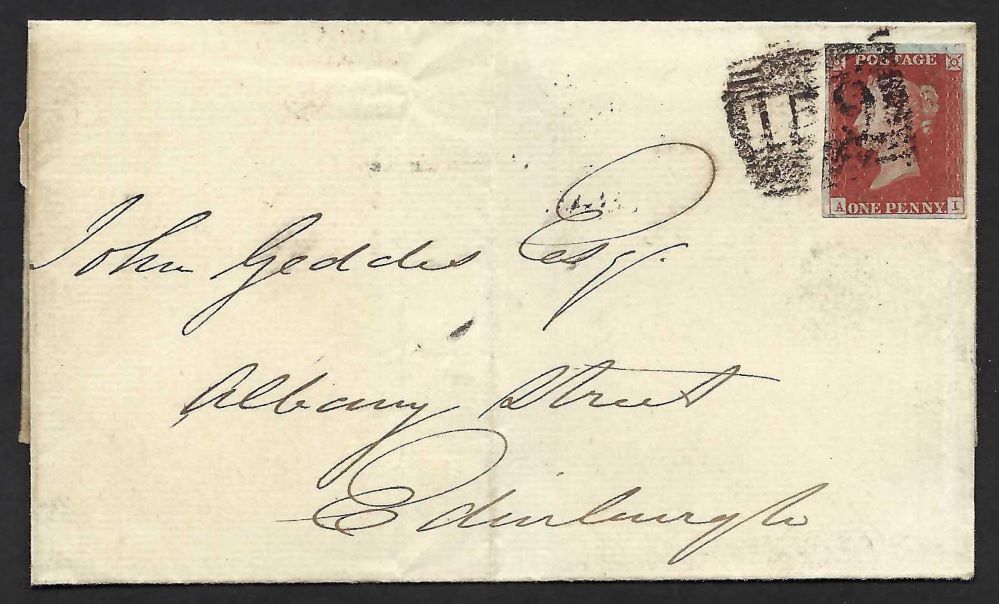 POSTAGE
A ONE PENNY I
John Geddes Esqr.
Albany Street
Edinburgh